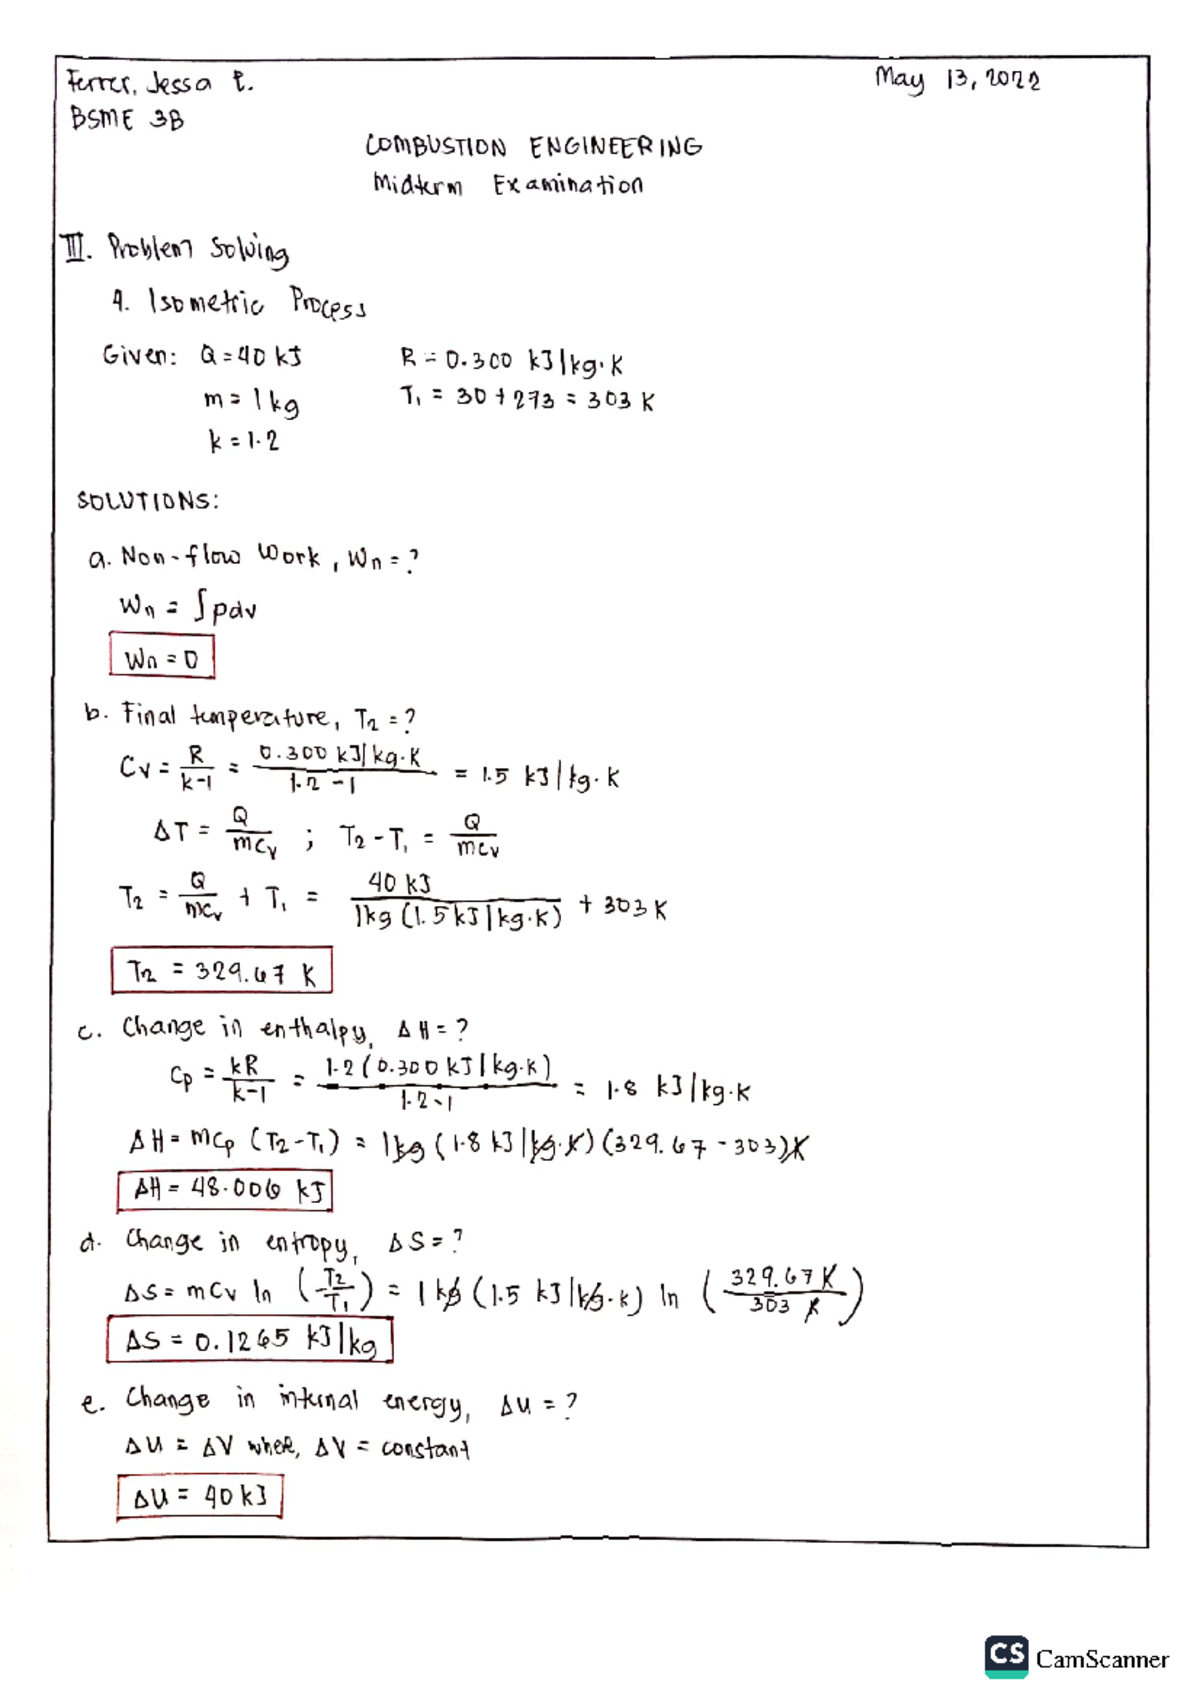 Ferrer, Jessa P.
May 13, 2022
BSME 3B
COMBUSTION ENGINEERING
Midterm Examination
III. Problem Solving
4. Isometric Process
Given: Q = 40 kJ
R = 0.300 kJ/kg·K
m = 1 kg
T₁ = 30 + 273 = 303 K
k = 1.2
SOLUTIONS:
a. Non-flow Work, Wn = ?
Wn = ∫pdv
Wn = 0
b. Final temperature, T₂ = ?
Cv = R/(k-1) = (0.300 kJ/kg·K)/(1.2-1) = 1.5 kJ/kg·K
ΔT = Q/(mCv) ; T₂ - T₁ = Q/(mCv)
T₂ = Q/(mCv) + T₁ = 40 kJ/(1kg (1.5 kJ/kg·K)) + 303 K
T₂ = 329.67 K
c. Change in enthalpy, ΔH = ?
Cp = kR/(k-1) = 1.2(0.300 kJ/kg·K)/(1.2-1) = 1.8 kJ/kg·K
ΔH = mCp (T₂-T₁) = 1kg (1.8 kJ/kg·K)(329.67 - 303)K
ΔH = 48.006 kJ
d. Change in entropy, ΔS = ?
ΔS = mCv ln (T₂/T₁) = 1 kg (1.5 kJ/kg·K) ln (329.67 K/303 K)
ΔS = 0.1265 kJ/kg
e. Change in internal energy, ΔU = ?
ΔU = ΔV whee, ΔV = constant
ΔU = 40 kJ
CS CamScanner